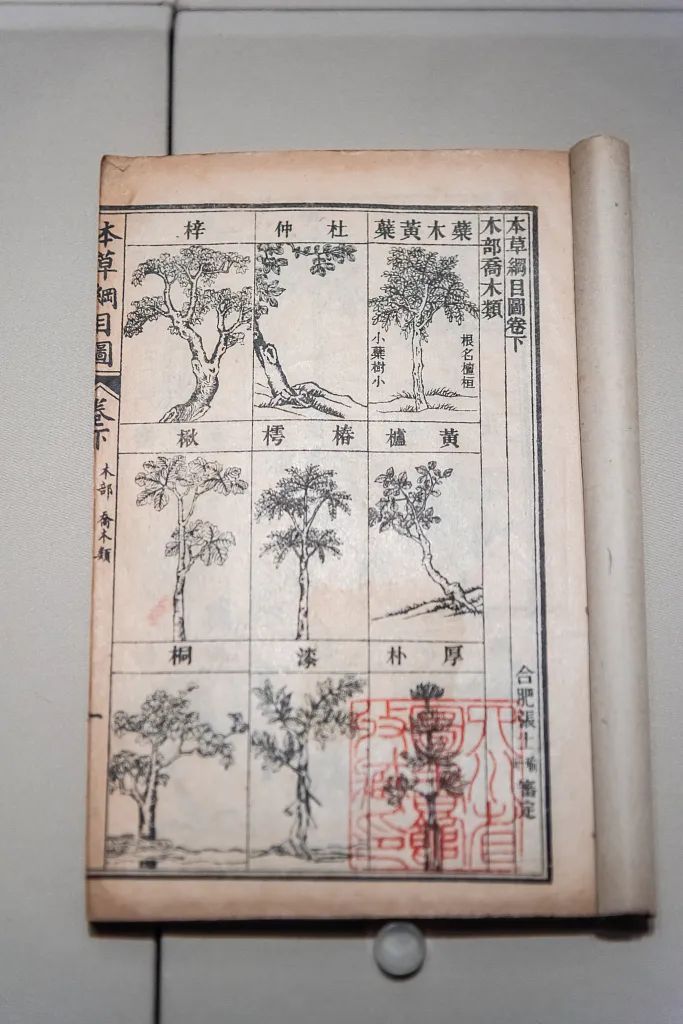 本草綱目圖卷下
合肥張士珩審定
木部喬木類
蘗木黃蘗
根名檀桓
小蘗樹小
杜仲
梓
黃櫨
椿樗
楸
厚朴
漆
桐
本草綱目圖
卷下
木部 喬木類
一